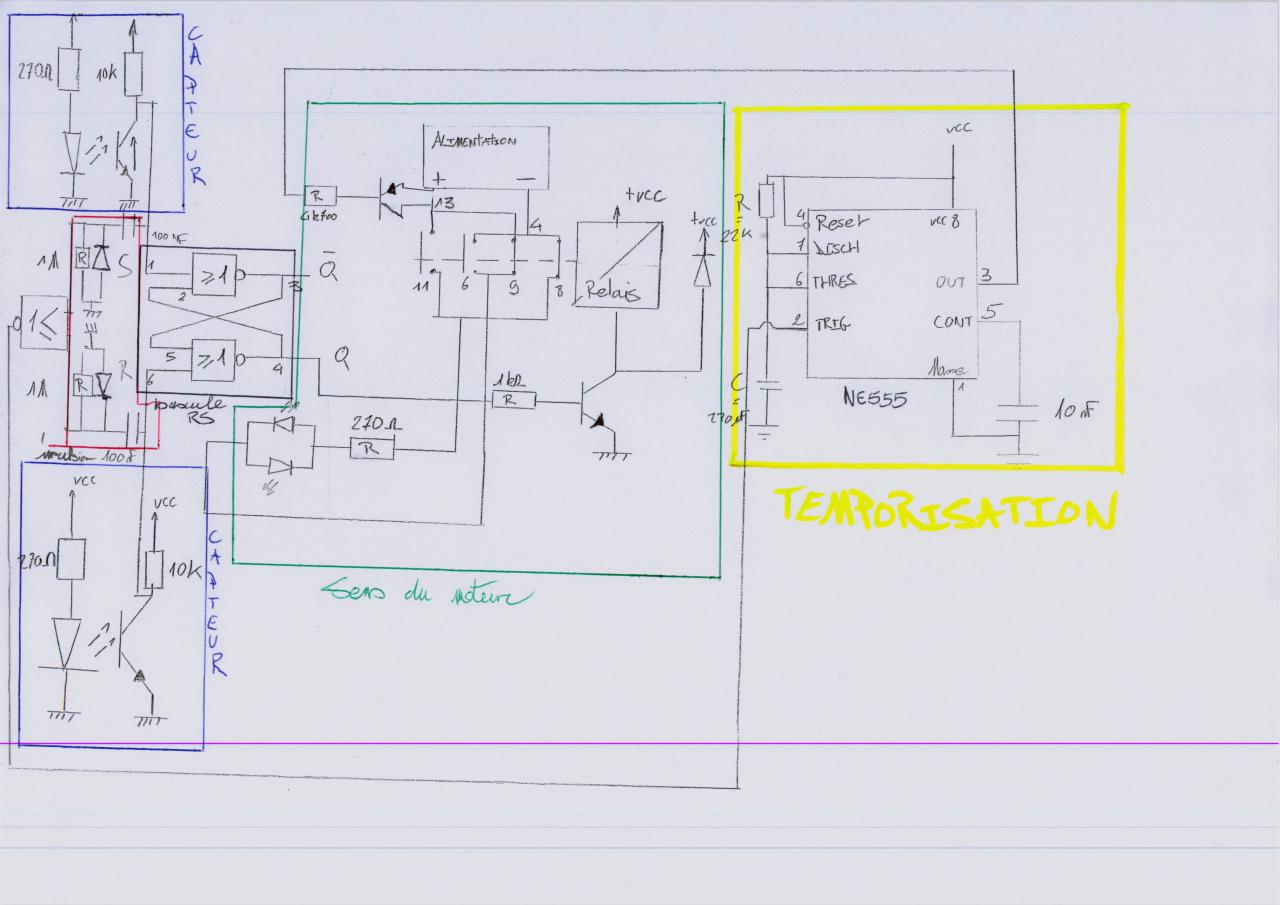 270Ω
10k
CAPTEUR
100 nF
1M
R
S
1
≥1
2
3
Q̅
1≤
1M
R
R
5
≥1
6
4
Q
bascule
RS
impulsion 100nF
vcc
vcc
270Ω
10K
CAPTEUR
R
4k700
ALIMENTATION
+
−
13
4
11
6
9
8
+vcc
Relais
+vcc
1kΩ
R
270Ω
R
Sens du moteur
vcc
R
=
22K
4 Reset
vcc 8
7 DISCH
6 THRES
OUT 3
2 TRIG
CONT 5
Masse
1
NE555
C
=
270µF
10nF
TEMPORISATION